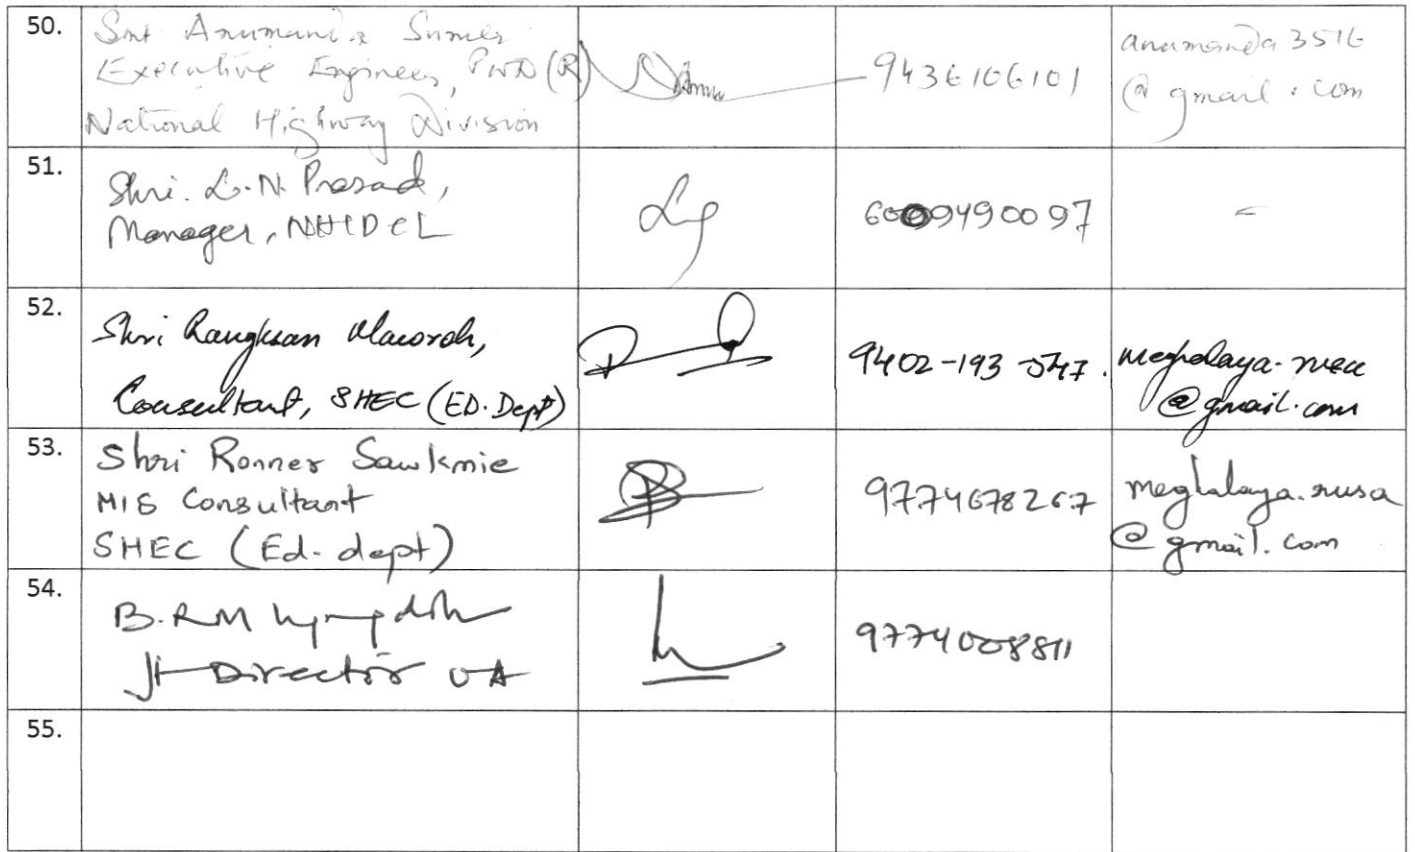 50.
Smt Anumanda Sumer
Executive Engineer, PWD (R)
National Highway Division
9436106101
anumanda3516
@gmail.com
51.
Shri. L.N. Prasad,
Manager, NHIDCL
6009490097
-
52.
Shri Rangksan Mawroh,
Consultant, SHEC (ED. Dept)
9402-193 047.
meghalaya.
@gmail.com
53.
Shri Ronner Sawkmie
MIS Consultant
SHEC (Ed. dept)
9774678267
meghalaya.rusa
@gmail.com
54.
B.RM Lyngdoh
Jt Director UA
9774008811
55.